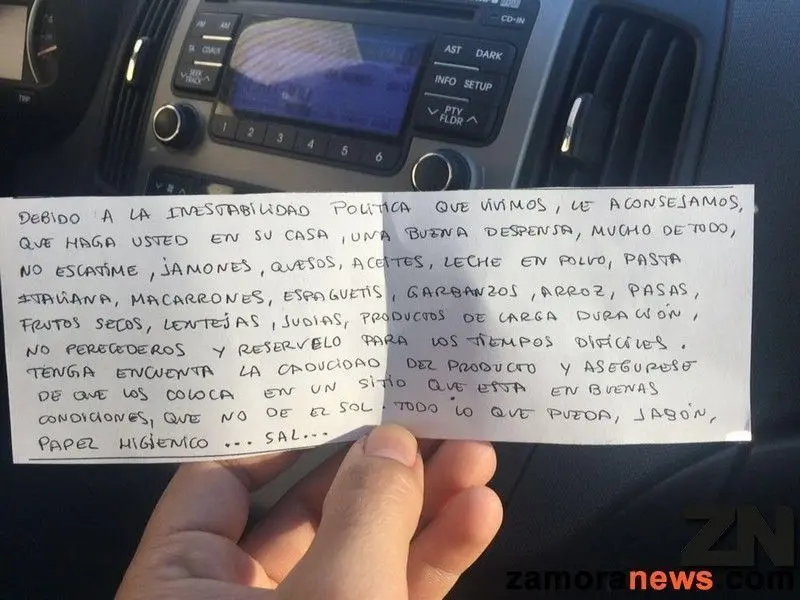 CD-IN
FM AM
TA CD/AUX
SEEK
TRACK
AST DARK
INFO SETUP
PTY
FLDR
1 2 3 4 5 6
TRIP
DEBIDO A LA INESTABILIDAD POLITICA QUE VIVIMOS, LE ACONSEJAMOS,
QUE HAGA USTED EN SU CASA, UNA BUENA DESPENSA, MUCHO DE TODO,
NO ESCATIME, JAMONES, QUESOS, ACEITES, LECHE EN POLVO, PASTA
ITALIANA, MACARRONES, ESPAGUETIS, GARBANZOS, ARROZ, PASAS,
FRUTOS SECOS, LENTEJAS, JUDIAS, PRODUCTOS DE LARGA DURACIÓN,
NO PERECEDEROS Y RESERVELO PARA LOS TIEMPOS DIFÍCILES.
TENGA ENCUENTA LA CADUCIDAD DEL PRODUCTO Y ASEGURESE
DE QUE LOS COLOCA EN UN SITIO QUE ESTA EN BUENAS
CONDICIONES, QUE NO DE EL SOL. TODO LO QUE PUEDA, JABÓN,
PAPEL HIGIENICO ... SAL...
ZN
zamoranews.com